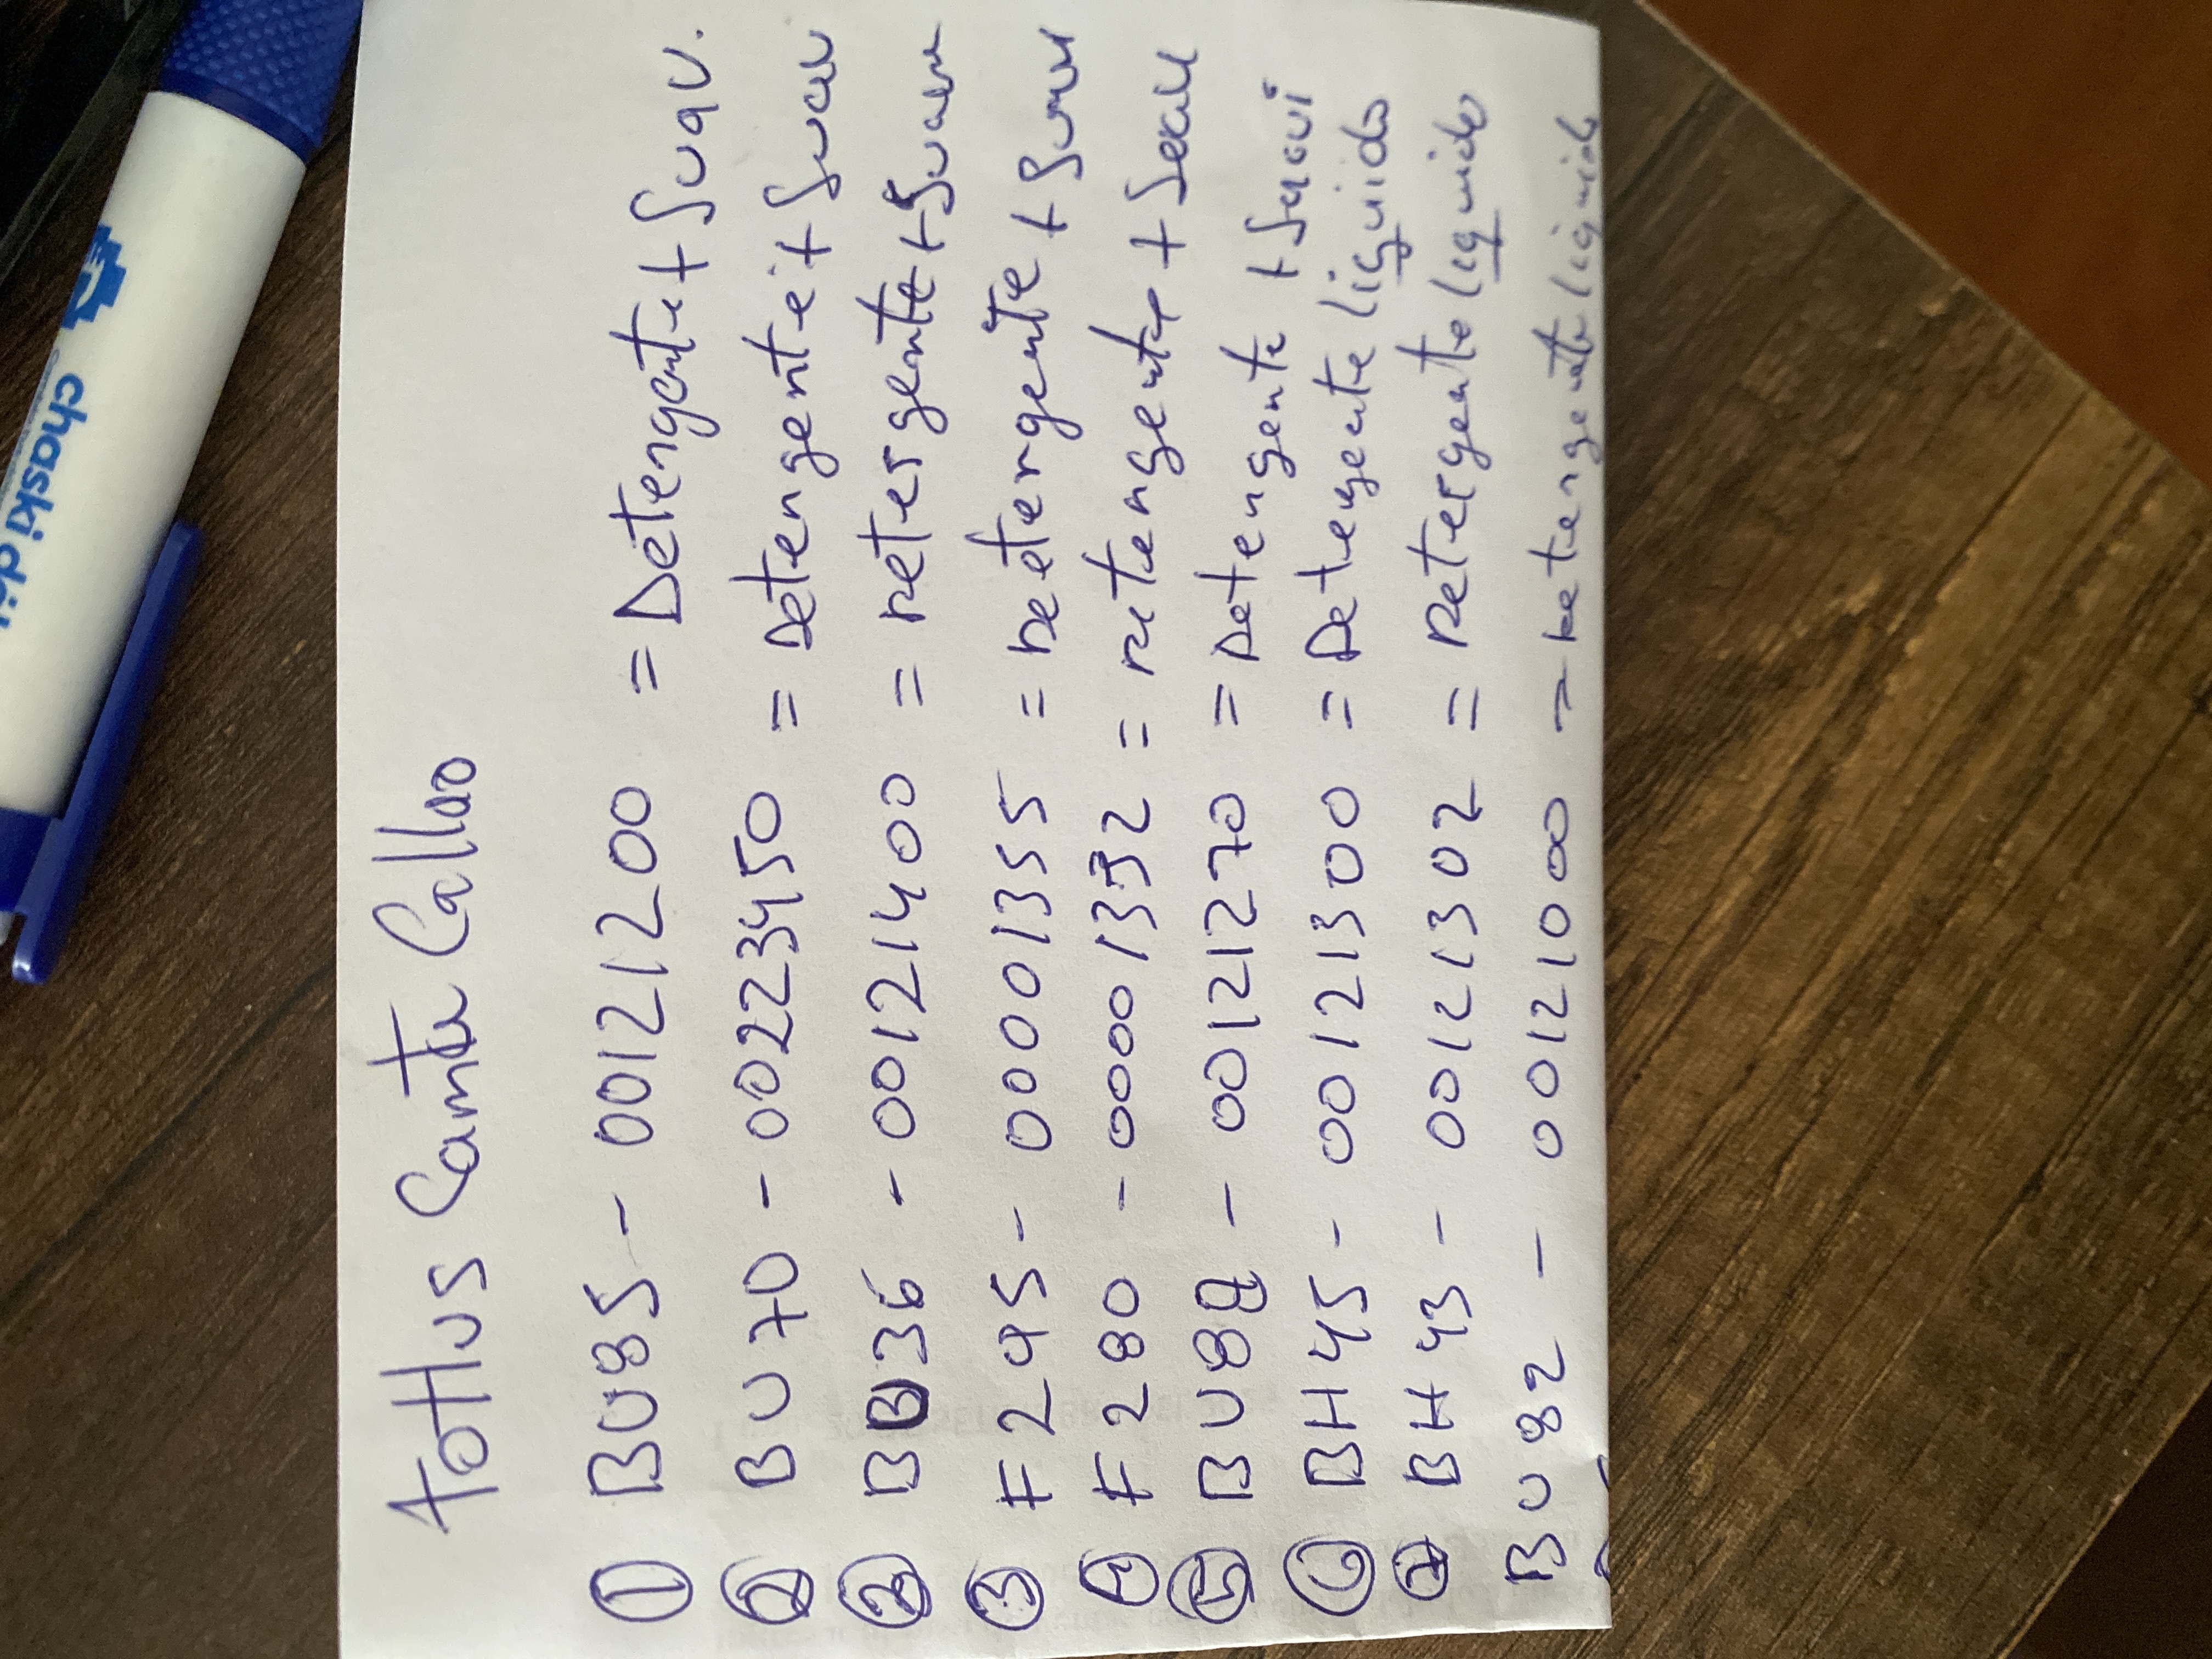 chaski dól
tottus Camte Callao
① BU85 - 00121200 = Detergente + Suav.
② BU70 - 00223450 = Detergente + Suav
② BU36 - 00121400 = Detergente + Suave
③ F295 - 00001355 = Deetergente + Suav
④ F280 - 00001332 = Detergente + Suav
⑤ BU88 - 00121270 = Detergente + Suavi
⑥ BH45 - 00121300 = Detergente liquido
⑦ BH43 - 00121302 = Detergente liquido
BU82 - 00121000 = Detergente liquido